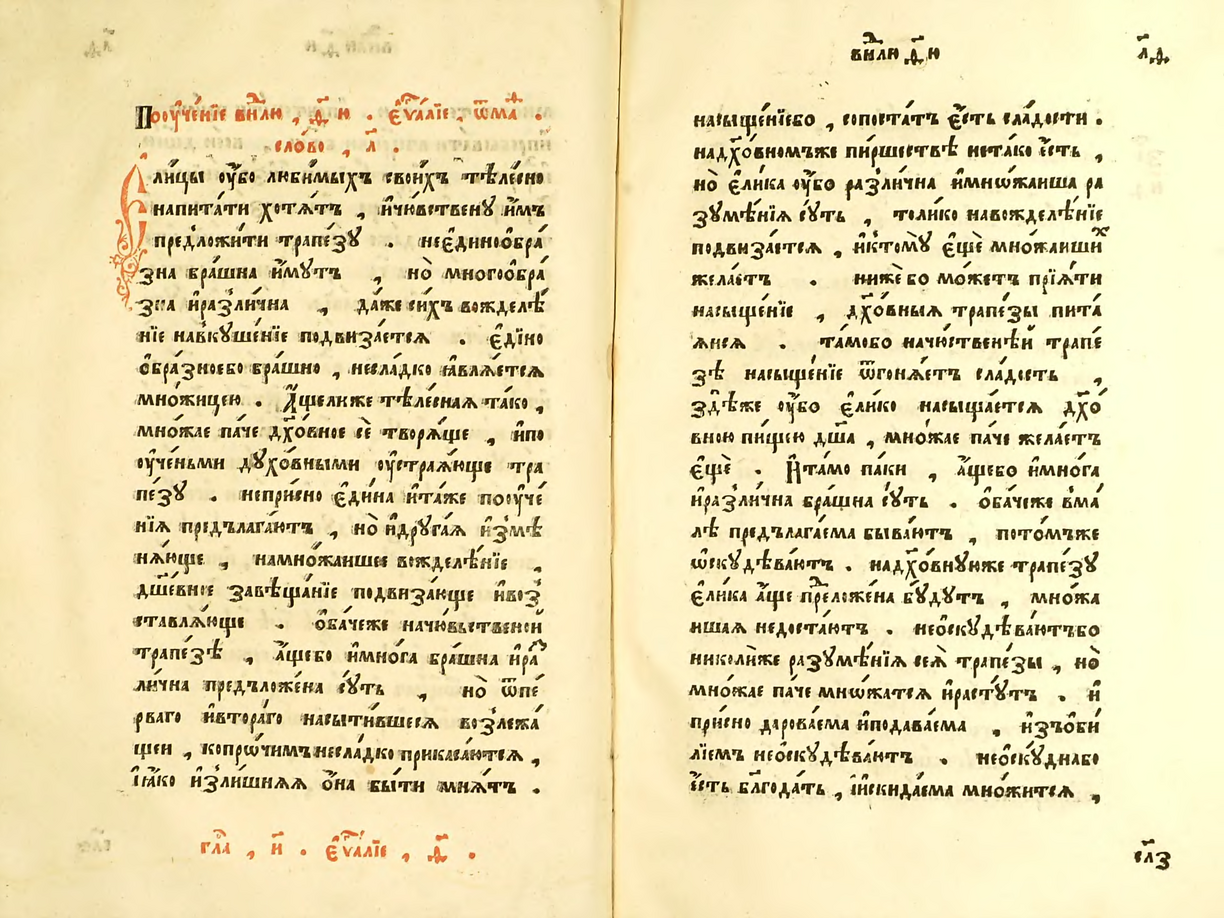 Поᲂу҆че́нїе внлю , д҃ ю . є҆ѵⷢ҇а́лїе , ѿ мⷴ҇а .
сло́во , л҃ .
Є҆лицы ᲂу҆́бо люби́мыхъ свои́хъ тѣле́сно
напита́ти хотѧ́тъ , и҆чю́вствену и҆̀мъ
предложи́ти трапе́зу . неє҆динноѻбра́
зна бра́шна и҆́мутъ , но̀ многоѻ҆бра́
зна и҆разли́чна , да́же си́хъ вожделѣ́
нїе навкуше́нїе подвиза́етсѧ . є҆ди́но
ѻ҆бра́зноебо бра́шно , несла́дко ꙗ҆влѧ́етсѧ
мно́жицею . А҆́щелиже тѣле́снаѧ та́ко ,
мно́жае па́че дх҃о́вное сѐ творѧ́ще , и҆по
ᲂуче́ньми духо́вными ᲂу҆строѧ́юще тра
пе́зу . непри́сно є҆ди́на и҆та́же поᲂуче́
нїѧ предълага́ютъ , но̀ и҆друга́ѧ и҆змѣ
нѧ́юще , намно́жаишее вожделѣ́нїе ,
дш҃е́вное завѣща́нїе подвиза́юще и҆воз
ставлѧ́юще . ѻ҆ба́чеже начю́вьственеи
трапе́зѣ , а҆́щебо и҆мно́га бра́шна и҆раⷥ
ли́чна предъложе́на су́ть , но̀ ѿпе́
рваго и҆втора́го насыти́вшеесѧ возлежа́
щеи , копрѡ́чимъ несла́дко прикаса́ютсѧ ,
ꙗ҆́ко и҆зли́шнѧѧ ѻ҆́на бы́ти мнѧ́тъ .
глⷡ҇а , и҃ . є҆ѵⷢ҇а́лїе , д҃ .
внлю д҃ ю
л҃д .
насыще́нїебо , сопоста́тъ є҆́сть сла́дости .
надх҃о́вномъже пи́ршествѣ нета́ко є҆́сть ,
но̀ є҆ли́ка ᲂу҆́бо разли́чна и҆мнѡ́жаиша ра
зумѣ́нїѧ су́ть , толи́ко навожделѣ́нїе
подвиза́етсѧ , и҆ктому̀ є҆щѐ мно́жаишиⷯ
жела́етъ . нижѐбо мо́жетъ прїѧ́ти
насыще́нїе , дх҃о́вныѧ трапе́зы пита́
ѧисѧ . та́мобо начю́ственѣи трапе́
зѣ насыще́нїе ѿгонѧ́етъ сла́дость ,
здѣ́же ᲂу҆́бо є҆ли́ко насыща́етсѧ дх҃о́
вною пи́щею дш҃а̀ , мно́жае па́че жела́етъ
є҆щѐ . И҆та́мо па́ки , а҆́щебо и҆мно́га
и҆разли́чна бра́шна су́ть . ѻ҆ба́чеже вма́
лѣ предълага́ема быва́ютъ , пото́мъже
ѡ҆скудѣва́ютъ . надх҃о́внуюже трапе́зу
є҆ли́ка а҆́ще преⷣложе́на бу́дутъ , мно́жа
ишаѧ недоста́ютъ . неѻ҆скудѣва́ютъбо
николи́же разумѣ́нїѧ сеѧ̀ трапе́зы , но̀
мно́жае па́че мнѡ́жатсѧ и҆расту́тъ . и҆
при́сно дарова́ема и҆подава́ема , и҆зъѻби́
лїемъ неѻ҆скудѣва́ютъ . неѻ҆ску́днабо
є҆́сть бл҃года́ть , и҆искида́ема мно́житсѧ ,
сл҃з